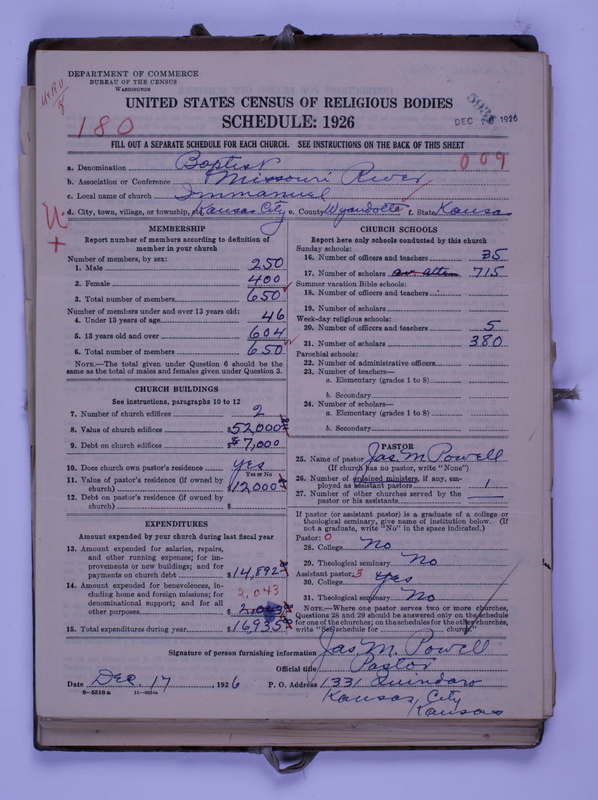 DEPARTMENT OF COMMERCE
BUREAU OF THE CENSUS
WASHINGTON
UNITED STATES CENSUS OF RELIGIOUS BODIES
SCHEDULE: 1926
DEC 20 1926
180
FILL OUT A SEPARATE SCHEDULE FOR EACH CHURCH. SEE INSTRUCTIONS ON THE BACK OF THIS SHEET
009
a. Denomination Baptist
b. Association or Conference Missouri River
c. Local name of church Immanuel
d. City, town, village, or township, Kansas City e. County Wyandotte f. State Kansas
MEMBERSHIP
Report number of members according to definition of
member in your church
Number of members, by sex:
1. Male 250
2. Female 400
3. Total number of members 650
Number of members under and over 13 years old:
4. Under 13 years of age 46
5. 13 years old and over 604
6. Total number of members 650
NOTE.—The total given under Question 6 should be the
same as the total of males and females given under Question 3.
CHURCH BUILDINGS
See instructions, paragraphs 10 to 12
7. Number of church edifices 2
8. Value of church edifices $52,000
9. Debt on church edifices $7,000
10. Does church own pastor's residence yes
Yes or No
11. Value of pastor's residence (if owned by
church) $12,000
12. Debt on pastor's residence (if owned by
church) $
EXPENDITURES
Amount expended by your church during last fiscal year
13. Amount expended for salaries, repairs,
and other running expenses; for im-
provements or new buildings; and for
payments on church debt $14,892
14. Amount expended for benevolences, in-
cluding home and foreign missions; for
denominational support; and for all
other purposes 2,043
15. Total expenditures during year $16935
CHURCH SCHOOLS
Report here only schools conducted by this church
Sunday schools:
16. Number of officers and teachers 35
17. Number of scholars av. atten 715
Summer vacation Bible schools:
18. Number of officers and teachers
19. Number of scholars
Week-day religious schools:
20. Number of officers and teachers 5
21. Number of scholars 380
Parochial schools:
22. Number of administrative officers
23. Number of teachers—
a. Elementary (grades 1 to 8)
b. Secondary
24. Number of scholars—
a. Elementary (grades 1 to 8)
b. Secondary
PASTOR
25. Name of pastor Jas. M. Powell
(If church has no pastor, write "None")
26. Number of ordained ministers, if any, em-
ployed as assistant pastors 1
27. Number of other churches served by the
pastor or his assistants
If pastor (or assistant pastor) is a graduate of a college or
theological seminary, give name of institution below. (If
not a graduate, write "No" in the space indicated.)
Pastor: 0
28. College No
29. Theological seminary No
Assistant pastor: 3
30. College Yes
31. Theological seminary No
NOTE.—Where one pastor serves two or more churches,
Questions 28 and 29 should be answered only on the schedule
for one of the churches; on the schedules for the other churches,
write "See schedule for church."
Signature of person furnishing information Jas. M. Powell
Official title Pastor
Date Dec. 17, 1926 P. O. Address 1331 Quindaro
Kansas City
Kansas